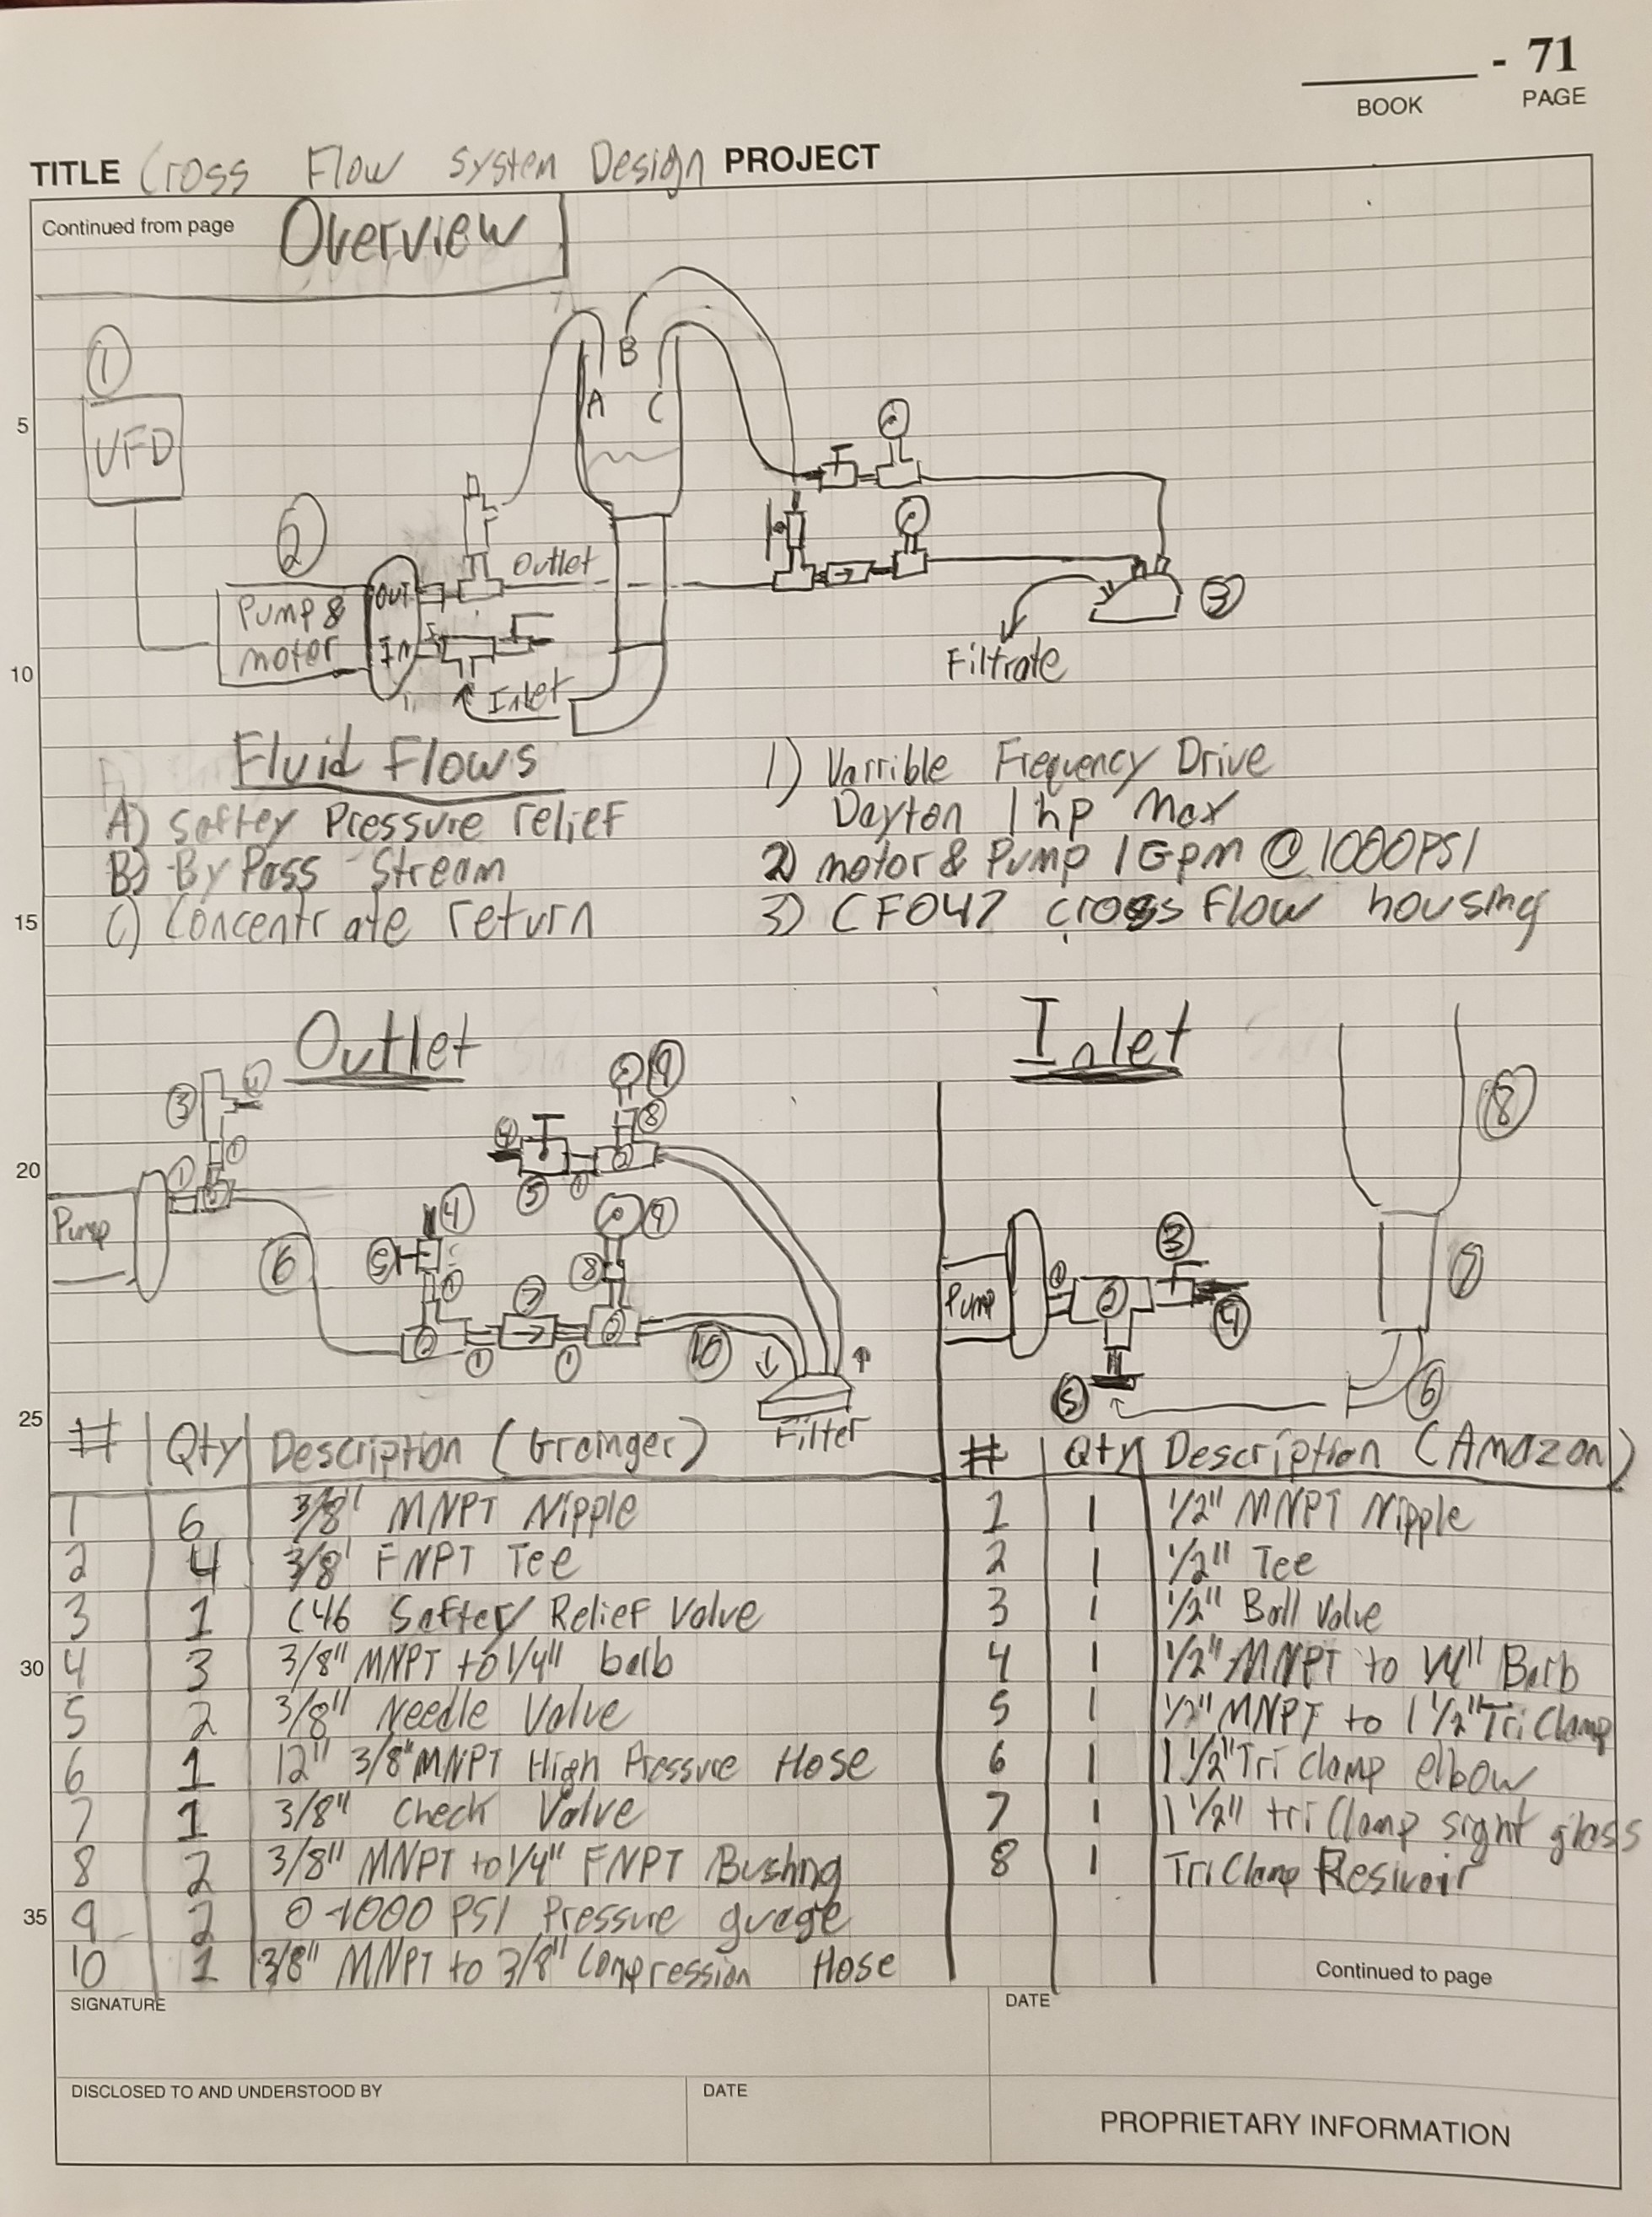 - 71
BOOK PAGE
TITLE Cross Flow System Design PROJECT
Continued from page Overview
1
VFD
B
A C
5
2
Outlet
Pump & motor OUT IN
3
Filtrate
10
Inlet
Fluid Flows
A) Saftey Pressure relief
B) By Pass Stream
C) Concentrate return
1) Varrible Frequency Drive
Dayton 1hp Max
2) motor & Pump 1Gpm @ 1000PSI
3) CF047 cross Flow housing
15
Outlet
3 4
9
4 8
1
2
20
1 5 1
Pump
6
4 9
5
1 8
7
2 2
1 1 10
Filter
Inlet
8
7
3
1 2
Pump
4
5 6
25
# Qty Description (Grainger)
1 6 3/8" MNPT Nipple
2 4 3/8' FNPT Tee
3 1 C46 Saftey Relief Valve
30
4 3 3/8" MNPT to 1/4" barb
5 2 3/8" Needle Valve
6 1 12" 3/8" MNPT High Pressure Hose
7 1 3/8" Check Valve
8 2 3/8" MNPT to 1/4" FNPT Bushng
35
9 2 0-1000 PSI Pressure guage
10 1 3/8" MNPT to 3/8" Compression Hose
# Qty Description (Amazon)
1 1 1/2" MNPT Nipple
2 1 1/2" Tee
3 1 1/2" Ball Valve
4 1 1/2" MNPT to 1/4" Barb
5 1 1/2" MNPT to 1 1/2" Tri Clamp
6 1 1 1/2" Tri Clamp elbow
7 1 1 1/2" tri Clamp sight glass
8 1 Tri Clamp Resivoir
Continued to page
SIGNATURE DATE
DISCLOSED TO AND UNDERSTOOD BY DATE
PROPRIETARY INFORMATION